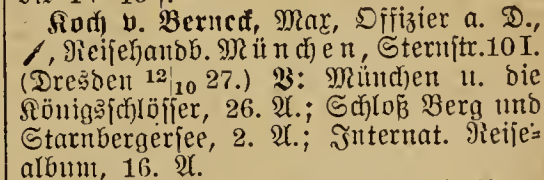 Koch v. Berneck, Max, Offizier a. D.,
/, Reisehandb. München, Sternstr. 10 I.
(Dresden 12|10 27.) V: München u. die
Königsschlösser, 26. A.; Schloß Berg und
Starnbergersee, 2. A.; Internat. Reise=
album, 16. A.